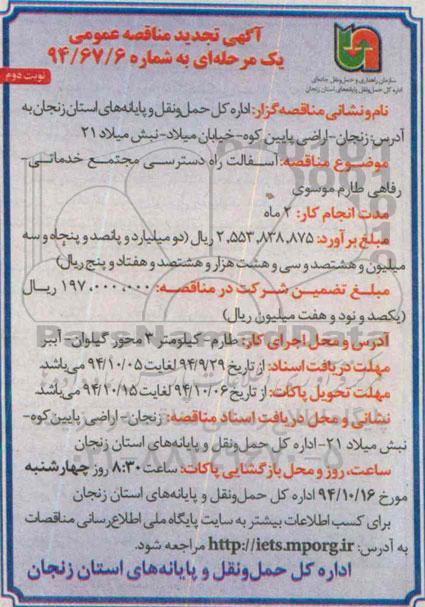 آگهی تجدید مناقصه عمومی
یک مرحله‌ای به شماره ۹۴/۶۷/۶
سازمان راهداری و حمل‌ونقل جاده‌ای
اداره کل حمل‌ونقل و پایانه‌های استان زنجان
نوبت دوم
نام و نشانی مناقصه‌گزار: اداره کل حمل‌ونقل و پایانه‌های استان زنجان به
آدرس: زنجان- اراضی پایین کوه- خیابان میلاد- نبش میلاد ۲۱
موضوع مناقصه: آسفالت راه دسترسی مجتمع خدماتی-
رفاهی طارم موسوی
مدت انجام کار: ۲ ماه
مبلغ برآورد: ۲,۵۵۳,۸۳۸,۸۷۵ ریال (دو میلیارد و پانصد و پنجاه و سه
میلیون و هشتصد و سی و هشت هزار و هشتصد و هفتاد و پنج ریال)
مبلغ تضمین شرکت در مناقصه: ۱۹۷,۰۰۰,۰۰۰ ریال
(یکصد و نود و هفت میلیون ریال)
آدرس و محل اجرای کار: طارم- کیلومتر ۳ محور گیلوان- آببر
مهلت دریافت اسناد: از تاریخ ۹۴/۹/۲۹ لغایت ۹۴/۱۰/۰۵ می‌باشد.
مهلت تحویل پاکات: از تاریخ ۹۴/۱۰/۰۶ لغایت ۹۴/۱۰/۱۵ می‌باشد.
نشانی و محل دریافت اسناد مناقصه: زنجان- اراضی پایین کوه-
نبش میلاد ۲۱- اداره کل حمل‌ونقل و پایانه‌های استان زنجان
ساعت، روز و محل بازگشایی پاکات: ساعت ۸:۳۰ روز چهارشنبه
مورخ ۹۴/۱۰/۱۶ اداره کل حمل‌ونقل و پایانه‌های استان زنجان
برای کسب اطلاعات بیشتر به سایت پایگاه ملی اطلاع‌رسانی مناقصات
به آدرس: http://iets.mporg.ir مراجعه شود.
اداره کل حمل‌ونقل و پایانه‌های استان زنجان